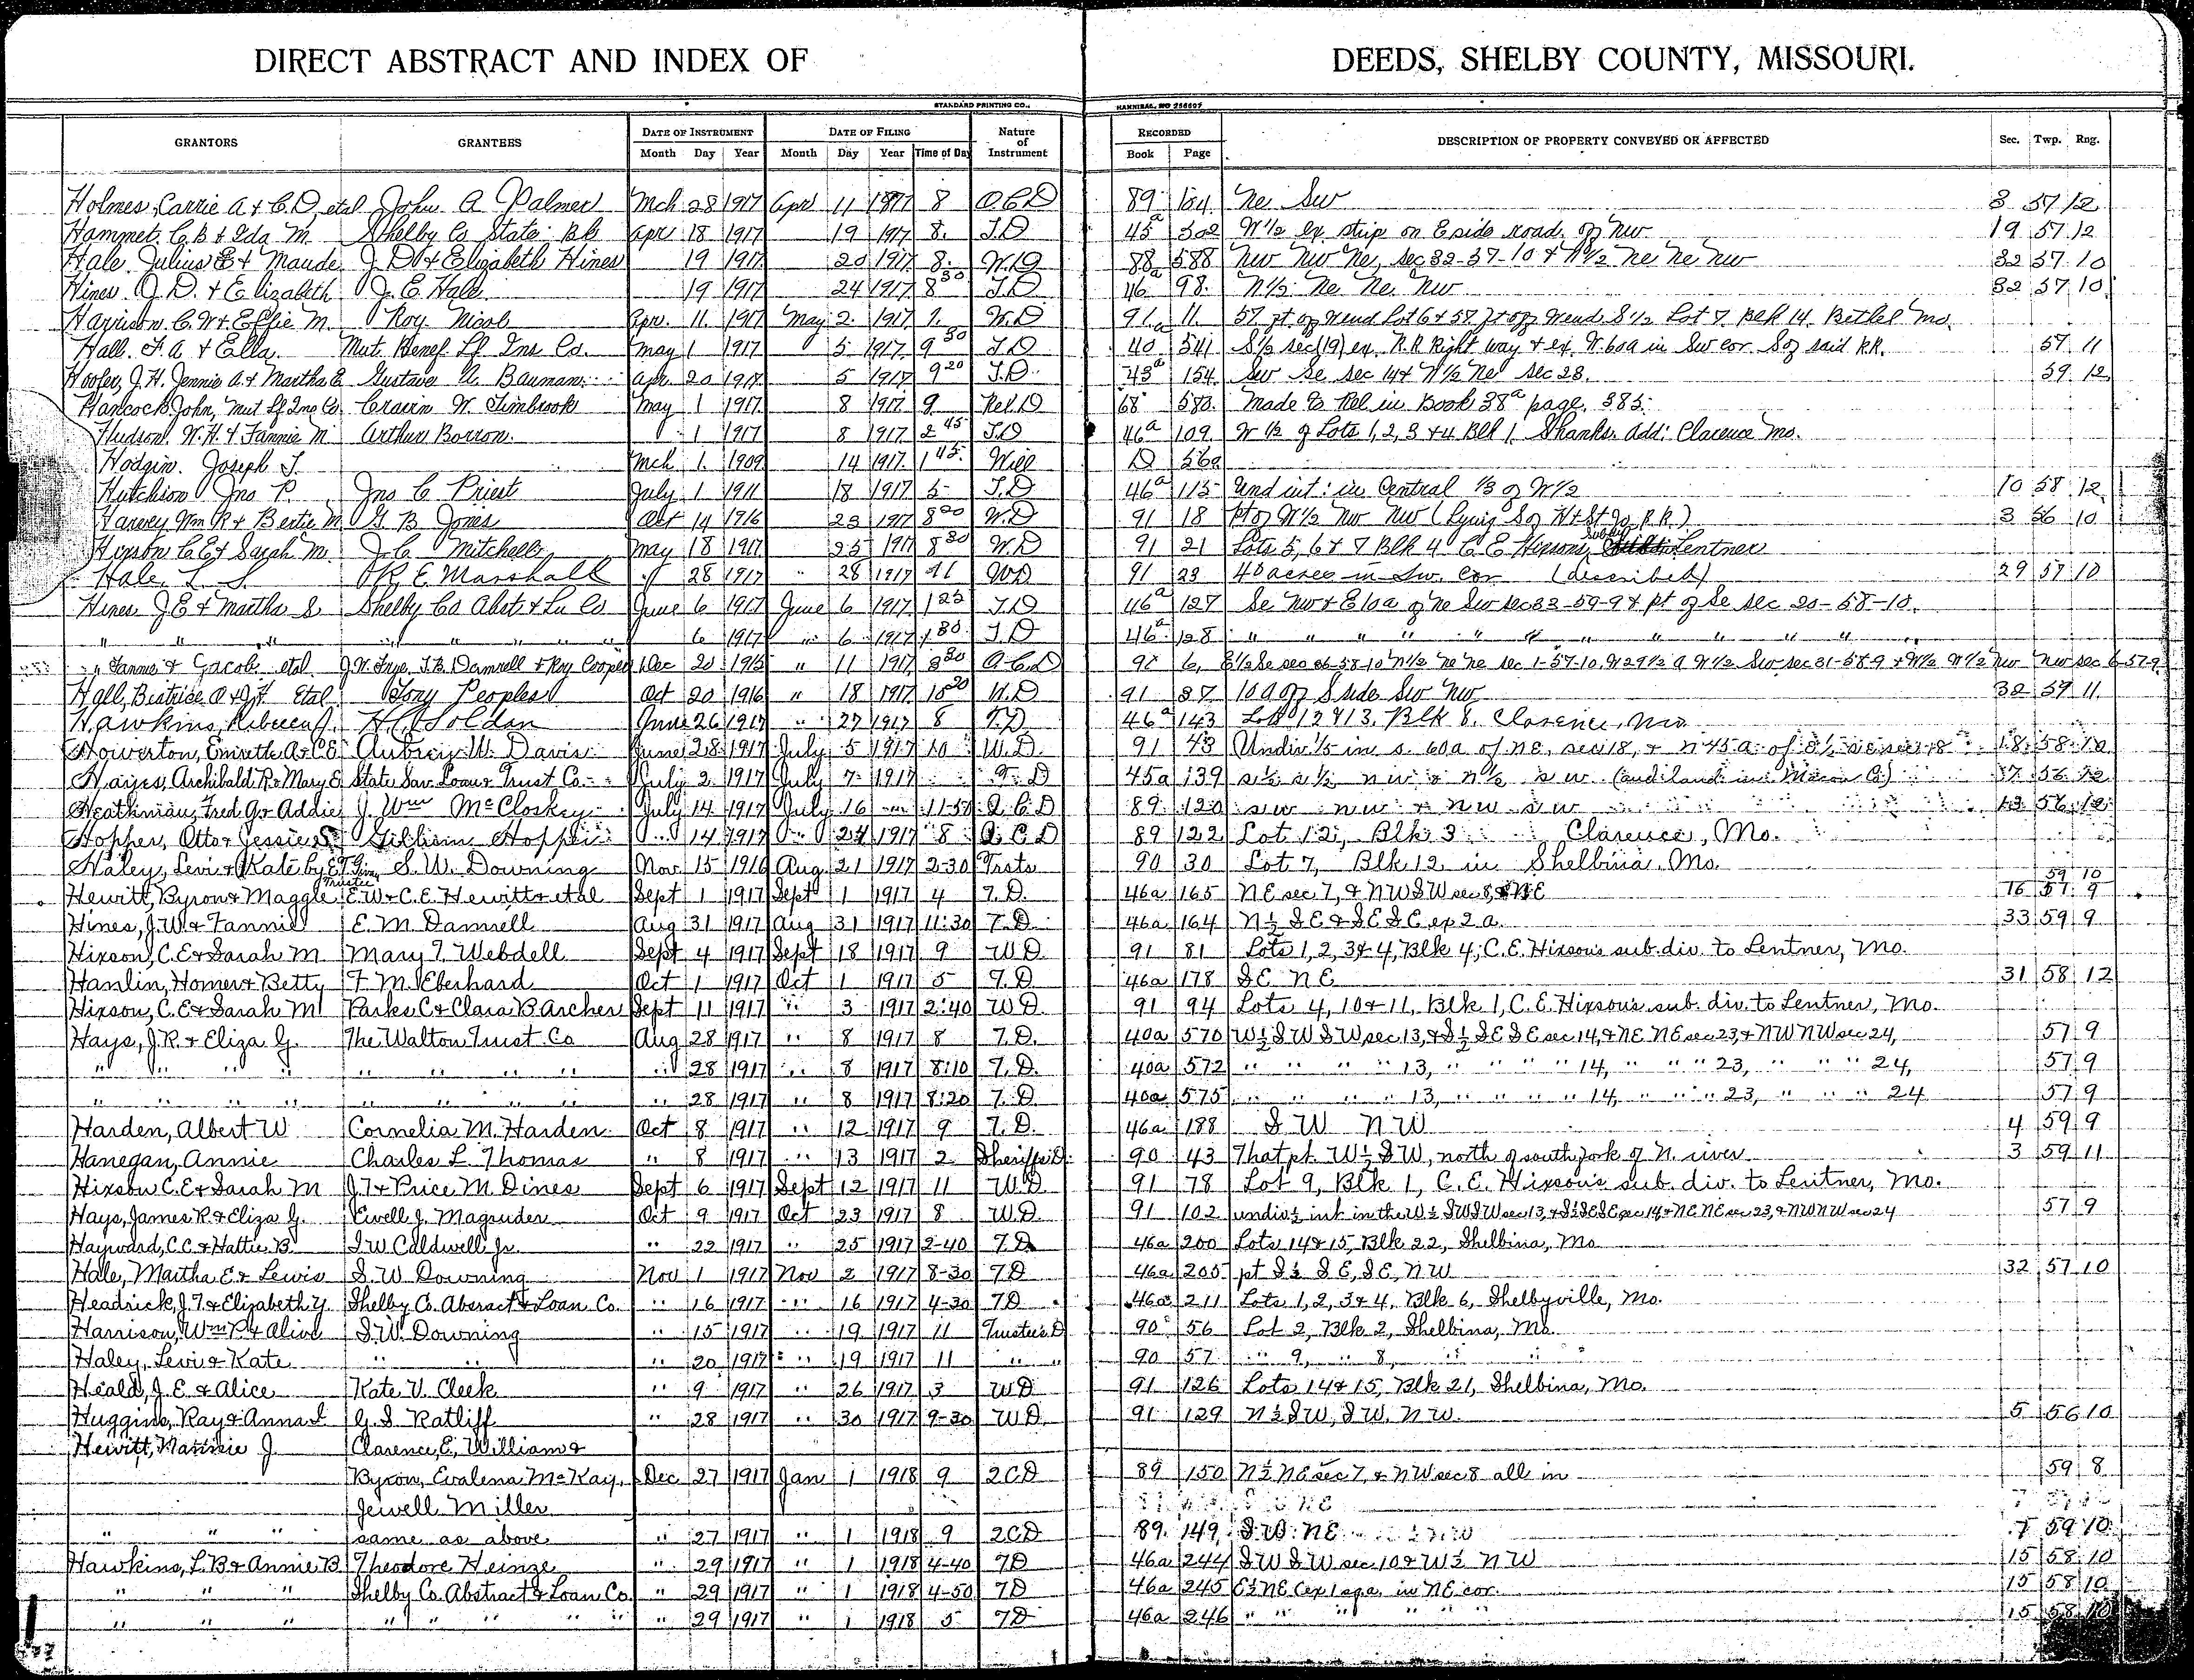 DIRECT ABSTRACT AND INDEX OF DEEDS, SHELBY COUNTY, MISSOURI.
STANDARD PRINTING CO., HANNIBAL, MO
GRANTORS GRANTEES DATE OF INSTRUMENT DATE OF FILING Nature of Instrument RECORDED DESCRIPTION OF PROPERTY CONVEYED OR AFFECTED Sec. Twp. Rng.
Month Day Year Month Day Year Time of Day Book Page
Holmes, Carrie A & C.D, etal John A Palmer Mch 28 1917 Apr 11 1917 8 Q C D 89 104 Ne Sw 3 57 12
Hammet. C B & Ida M Shelby Co State Bk Apr 18 1917 19 1917 8. T.D 45a 302 W ½ ex strip on E side road of Nw 19 57 12
Hale. Julius E & Maude J. D & Elizabeth Hines 19 1917 20 1917 8. W.D 88 588 Nw Nw Ne, sec 32-57-10 & N½ Ne Ne Nw 32 57 10
Hines J. D. & Elizabeth J. E. Hale 19 1917 24 1917 8 30 T.D 46a 98. N½ Ne Ne Nw 32 57 10
Harrison C. W & Effie M. Roy Nicol Apr. 11. 1917 May 2. 1917 1. W.D 91 11. 57 ft off N end Lot 6 & 57 ft off N end S ½ Lot 7 Blk 14. Bethel Mo.
Hall. F. A & Ella. Mut. Benef Lf Ins Co. May 1 1917 5 1917 9 30 T.D 40a 541 S½ sec (19) ex. R.R Right way & ex. W. 60a in Sw cor. S of said RR. 57 11
Hoofer, J. H. Jennie A. & Martha E Gustave A. Bauman. Apr. 20 1917 5 1917 9 20 T.D. 45a 154. Sw Se Sec 14 & N½ Ne Sec 28. 59 12
Hancock John, Mut Lf Ins Co. Cravin W. Timbrook May 1 1917 8 1917 9 Rel D 68 583. Made to Rel in Book 38a page. 385.
Hudson W. H. & Fannie M Arthur Borron. 1 1917 8 1917 2 45 T.D 46a 109. W ½ of Lots 1, 2, 3 & 4 Blk 1 Shanks. Add: Clarence Mo.
Hodgin. Joseph T. Mch 1. 1909 14 1917. 1 45 Will D 560
Hutchison Jno P. Jno C Priest July 1 1911 18 1917 5 T.D 46a 115 Und int: in Central ⅓ of W½ 10 58 12
Harvey Wm R & Bertie M G. B. Jones Oct 14 1916 23 1917 8 20 W.D 91 18 pt of W½ Nw Nw (Lying S of H & St Jo R.R.) 3 56 10
Hixson C E & Sarah M. J. C Mitchell May 18 1917 25 1917 8 30 W.D 91 21 Lots 5, 6 & 7 Blk 4 C E Hixsons Subdiv Lentner
Hale L. S. R. E. Marshall " 28 1917 " 28 1917 11 WD 91 23 40 acres in Sw. Cor (described) 29 57 10
Hines J. E & Martha S. Shelby Co Abst & Ln Co June 6 1917 June 6 1917 1 25 T.D 46a 127 Se Nw & E 10a of Ne Sw sec 33-59-9 & pt of Se sec 20-58-10.
" " " " " " " 6 1917 " 6 1917 1 30 T.D 46a 128 " " " " " " " " " " "
" Fannie & Jacob etal J. W. Frye, T. B. Damrell & Roy Cooper Dec 20 1915 " 11 1917 8 30 Q.C.D 6.
Hall, Beatrice A & J. F Etal Tony Peoples Oct 20 1916 " 18 1917 10 20 W.D 91 37 10 a off S side Sw Nw 32 59 11.
Hawkins, Rebecca J. H. C. Soldan June 26 1917 " 27 1917 8 T.D 46a 143 Lots 12 & 13. Blk 8. Clarence, Mo
Howerton, Emrette A & C E Aubrey W. Davis June 28 1917 July 5 1917 10 W.D. 91 43 Undiv ⅕ in s. 60a of NE, sec 18, & 18 58 10
Hayes, Archibald R & Mary E State Sav Loan & Trust Co. July 2 1917 July 7 1917 T. D 45a 139 s½ s½ n w & n½ s w (and land in Macon Co.) 17 56 12
Heathman, Fred G & Addie J. Wm McCloskey July 14 1917 July 16 " 11-50 Q. C. D 89 120 s w n w & n w s w 13 56 12
Hopper, Otto & Jessie William Hopper " 14 1917 " 24 1917 8 Q. C D 89 122 Lot 12, Blk 3 Clarence, Mo.
Haley, Levi & Kate by E. T. Trustee S. W. Downing Nov 15 1916 Aug 21 1917 2-30 Trsts 90 30 Lot 7, Blk 12 in Shelbina. Mo.
Hewitt, Byron & Maggie E. W & C. E. Hewitt & etal Sept 1 1917 Sept 1 1917 4 T. D. 46a 165 NE sec 7, & NW SW sec 8, & NE 16 59 10 57 9
Hines, J. W. & Fannie E. M. Damrell Aug 31 1917 Aug 31 1917 11:30 T. D. 46a 164 N ½ S E & S E S E, ex 2 a. 33 59 9
Hixson, C. E & Sarah M Mary T. Webdell Sept 4 1917 Sept 18 1917 9 WD 91 81 Lots 1, 2, 3 & 4, Blk 4, C. E. Hixson's sub-div. to Lentner, Mo.
Hanlin, Homer & Betty F. M. Eberhard Oct 1 1917 Oct 1 1917 5 T. D. 46a 178 S E N E 31 58 12
Hixson, C. E & Sarah M Parks C & Clara B Archer Sept 11 1917 " 3 1917 2:40 WD 91 94 Lots 4, 10 & 11, Blk 1, C. E. Hixson's sub. div. to Lentner, Mo.
Hays, J. R. & Eliza G. The Walton Trust Co Aug 28 1917 " 8 1917 8 T. D. 40a 570 W ½ S W S W sec 13, & S ½ S E S E sec 14, & N E N E sec 23, & N W N W sec 24, 57 9
" " " " " " " " " 28 1917 " 8 1917 8:10 T. D. 40a 572 " " " " 13, " " " " 14, " " " 23, " " " 24, 57 9
" " " " " " " " " 28 1917 " 8 1917 8:20 T. D. 40a 575 " " " " 13, " " " " 14, " " " 23, " " " 24 57 9
Harden, Albert W Cornelia M. Harden Oct 8 1917 " 12 1917 9 T. D. 46a 188 S W N W 4 59 9
Hanegan, Annie Charles L. Thomas " 8 1917 " 13 1917 2 Sheriff's D. 90 43 That pt. W ½ S W, north of south fork of N. river 3 59 11
Hixson C. E & Sarah M J. T & Price M. Dines Sept 6 1917 Sept 12 1917 11 W.D. 91 78 Lot 9, Blk 1, C. E. Hixson's sub. div. to Lentner, Mo.
Hays, James R & Eliza G. Ewell J. Magruder Oct 9 1917 Oct 23 1917 8 W.D. 91 102 undiv ½ int in the W ½ S W S W sec 13, & S ½ S E S E sec 14 & N E N E sec 23, & N W N W sec 24 57 9
Hayward, C. C. & Hattie B. S. W Caldwell Jr. " 22 1917 " 25 1917 2-40 T D 46a 200 Lots 14 & 15, Blk 22, Shelbina, Mo
Hale, Martha E & Lewis S. W. Downing Nov 1 1917 Nov 2 1917 8-30 T D 46a 205 pt S ½ S E, S E, N W 32 57 10
Headrick, J. T. & Elizabeth Y. Shelby Co. Absract & Loan Co. " 16 1917 " 16 1917 4-30 TD 46a 211 Lots 1, 2, 3 & 4, Blk 6, Shelbyville, Mo.
Harrison, Wm P & Alive S. W. Downing " 15 1917 " 19 1917 11 Trustee's D 90 56 Lot 2, Blk 2, Shelbina, Mo.
Haley, Levi & Kate " " " 20 1917 " 19 1917 11 " " 90 57 " 9, " 8, " "
Heald, J. E. & Alice Kate V. Cleek " 9 1917 " 26 1917 3 WD 91 126 Lots 14 & 15, Blk 21, Shelbina, Mo.
Huggins, Ray & Anna L G. S. Ratliff " 28 1917 " 30 1917 9-30 WD 91 129 N ½ S W, S W. N W. 5 56 10
Hewitt, Nannie J. Clarence, E, William &
Byron, Evalena McKay, Dec 27 1917 Jan 1 1918 9 2CD 89 150 N ½ NE sec 7, & N W sec 8 all in 59 8
Jewell Miller
" " " same as above " 27 1917 " 1 1918 9 2CD 89 149 S W. N E 7 59 10
Hawkins, L. B & Annie B Theodore Heinze " 29 1917 " 1 1918 4-40 TD 46a 244 S W S W sec 10 & W ½ N W 15 58 10
" " " Shelby Co. Abstract & Loan Co " 29 1917 " 1 1918 4-50 TD 46a 245 E ½ N E (ex 1 aga. in N E cor. 15 58 10
" " " " " " " " " 29 1917 " 1 1918 5 TD 46a 246 " " " " " " 15 58 10